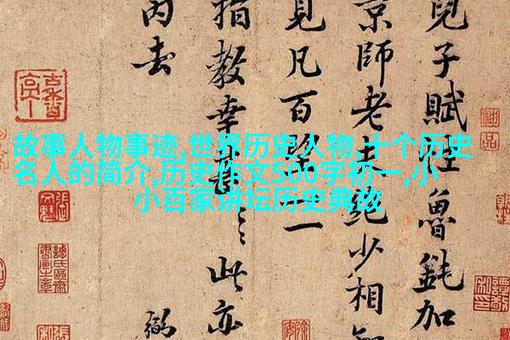 故事人物事迹,世界历史人物,十个历史
名人的简介,历史作文500字初一,小
小百家讲坛历史典故
兒子賦性魯鈍加
京師老絕少相
見凡百望一
指教幸甚此亦
去